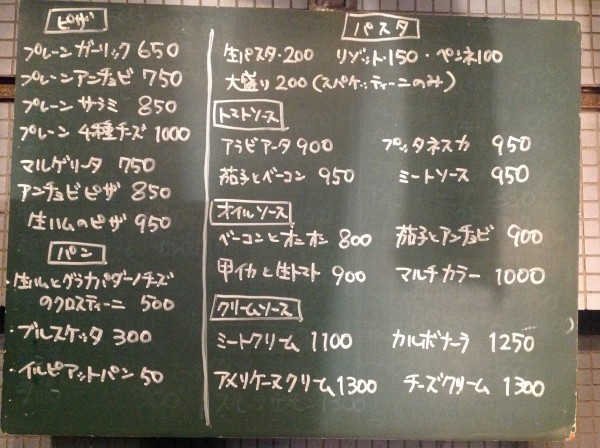 ピザ
プレーンガーリック 650
プレーンアンチョビ 750
プレーンサラミ 850
プレーン4種チーズ 1000
マルゲリータ 750
アンチョビピザ 850
生ハムのピザ 950
パン
・生ハムとグラナパダーノチーズ
のクロスティーニ 500
・ブルスケッタ 300
・イルピアットパン 50
パスタ
生パスタ・200 リゾット・150・ペンネ100
大盛り200(スパゲッティーニのみ)
トマトソース
アラビアータ 900 プッタネスカ 950
茄子とベーコン 950 ミートソース 950
オイルソース
ベーコンとオニオン 800 茄子とアンチョビ 900
甲イカと生トマト 900 マルチカラー 1000
クリームソース
ミートクリーム 1100 カルボナーラ 1250
アメリケーヌクリーム1300 チーズクリーム 1300